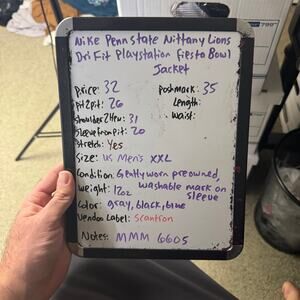 Nike Penn State Nittany Lions
Dri Fit Playstation Fiesta Bowl
Jacket
Price: 32
Poshmark: 35
Pit2pit: 26
Length:
Shoulder2Hem: 31
Waist:
Sleeve from pit: 20
Stretch: Yes
Size: US Men's XXL
Condition: Gently worn preowned,
washable mark on
sleeve
Weight: 12oz
Color: gray, black, blue
Vendoo Label: Scantron
Notes: MMM 6605